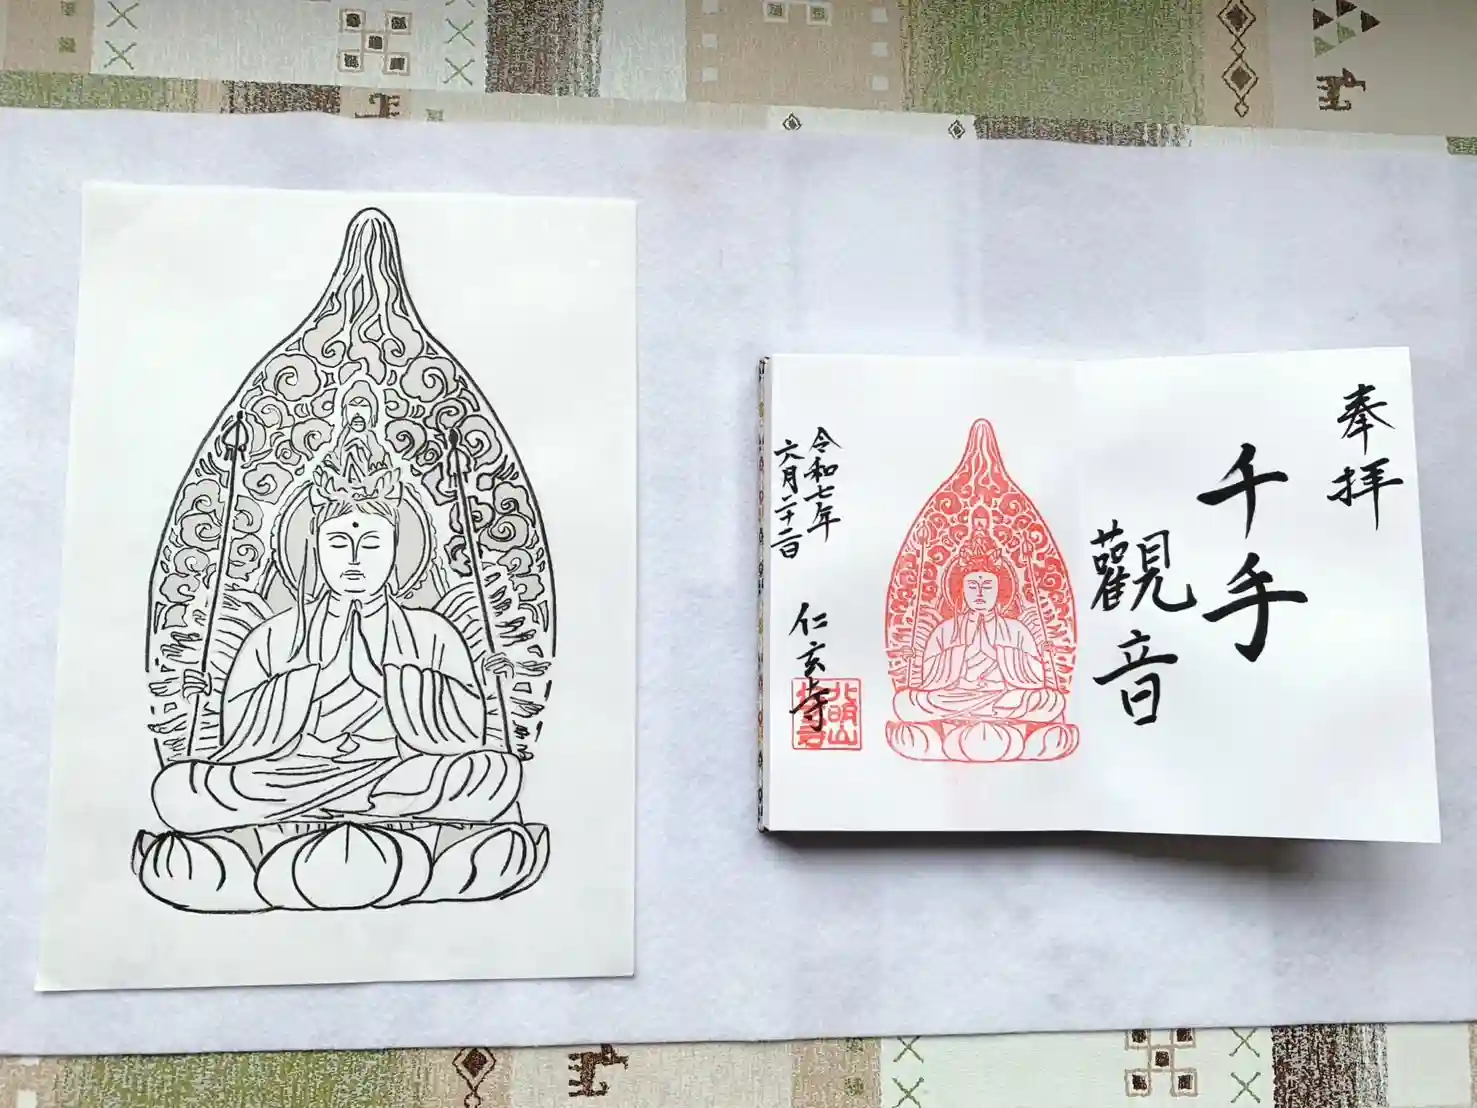 奉拝
千手
觀音
令和七年
六月二十二日
仁玄寺
北明山